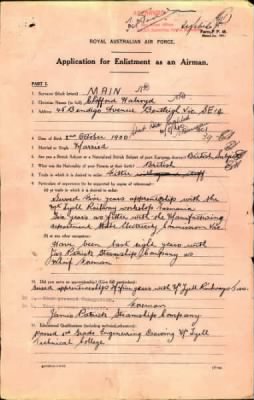 Form P.P. 18.
ROYAL AUSTRALIAN AIR FORCE.
Application for Enlistment as an Airman.
PART I.
1. Surname (block letters) MAIN
2. Christian Names (in full) Clifford
3. Address 46 Bendigo Avenue Bentleigh Vic SE14
4. Date of Birth 2nd October 1900
5. Married or Single Married
6. Are you a British Subject or a Naturalized British Subject of pure European descent British Subject
7. What are the Nationality of your Parents of their Birth British
8. Trade in which it is desired to enter Fitter
9. Particulars of experience to be supported by copies of references
Served Five years apprenticeship with the
Mt Lyell Railway workshop Tasmania
Six years as fitter with the Manufacturing
department State Electricity Commission Vic
(b) or any other occupation:
Have been last eight years with
Jas Patrick Steamship Company as
Wharf Foreman
10. Did you serve an apprenticeship? (Give full particulars)
Served apprenticeship of five years with Mt Lyell Railways Tas.
Foreman
James Patrick Steamship Company
11. Educational Qualifications (including technical education)
passed 1st Grade Engineering Drawing Mt Lyell
Technical College